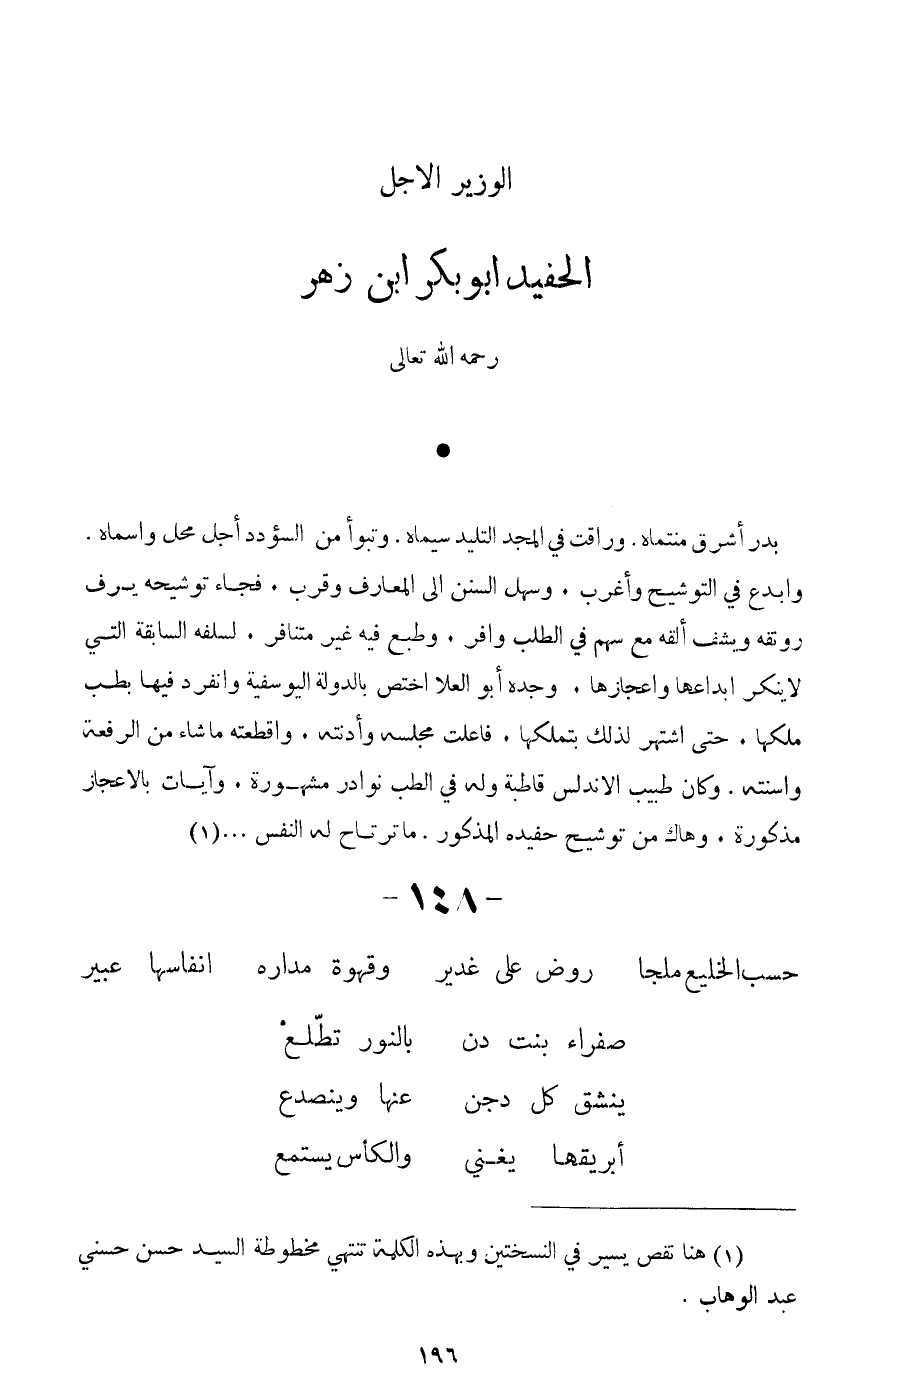 الوزير الاجل
الحفيد ابو بكر ابن زهر
رحمه الله تعالى
بدر أشرق منتماه . وراقت في المجد التليد سيماه . وتبوأ من السؤدد أجل محل واسماه .
وابدع في التوشيح وأغرب . وسهل السنن الى المعارف وقرب . فجاء توشيحه يرف
رونقه ويشف ألقه مع سهم في الطلب وافر . وطبع فيه غير متنافر . لسلفه السابقة التي
لاينكر ابداعها واعجازها . وجده أبو العلا اختص بالدولة اليوسفية وانفرد فيها بطب
ملكها . حتى اشتهر لذلك بتملكها . فاعلت مجلسه وأدنته . واقطعته ماشاء من الرفعة
واسنته . وكان طبيب الاندلس قاطبة وله في الطب نوادر مشهورة . وآيات بالاعجاز
مذكورة . وهاك من توشيح حفيده المذكور . ما ترتاح له النفس ...(١)
- ١٤٨ -
حسب الخليع ملجا روض على غدير وقهوة مداره انفاسها عبير
صفراء بنت دن بالنور تطّلعْ
ينشق كل دجن عنها وينصدع
أبريقها يغني والكأس يستمع
(١) هنا نقص يسير في النسختين وبهذه الكلمة تنتهي مخطوطة السيد حسن حسني
عبد الوهاب .
١٩٦